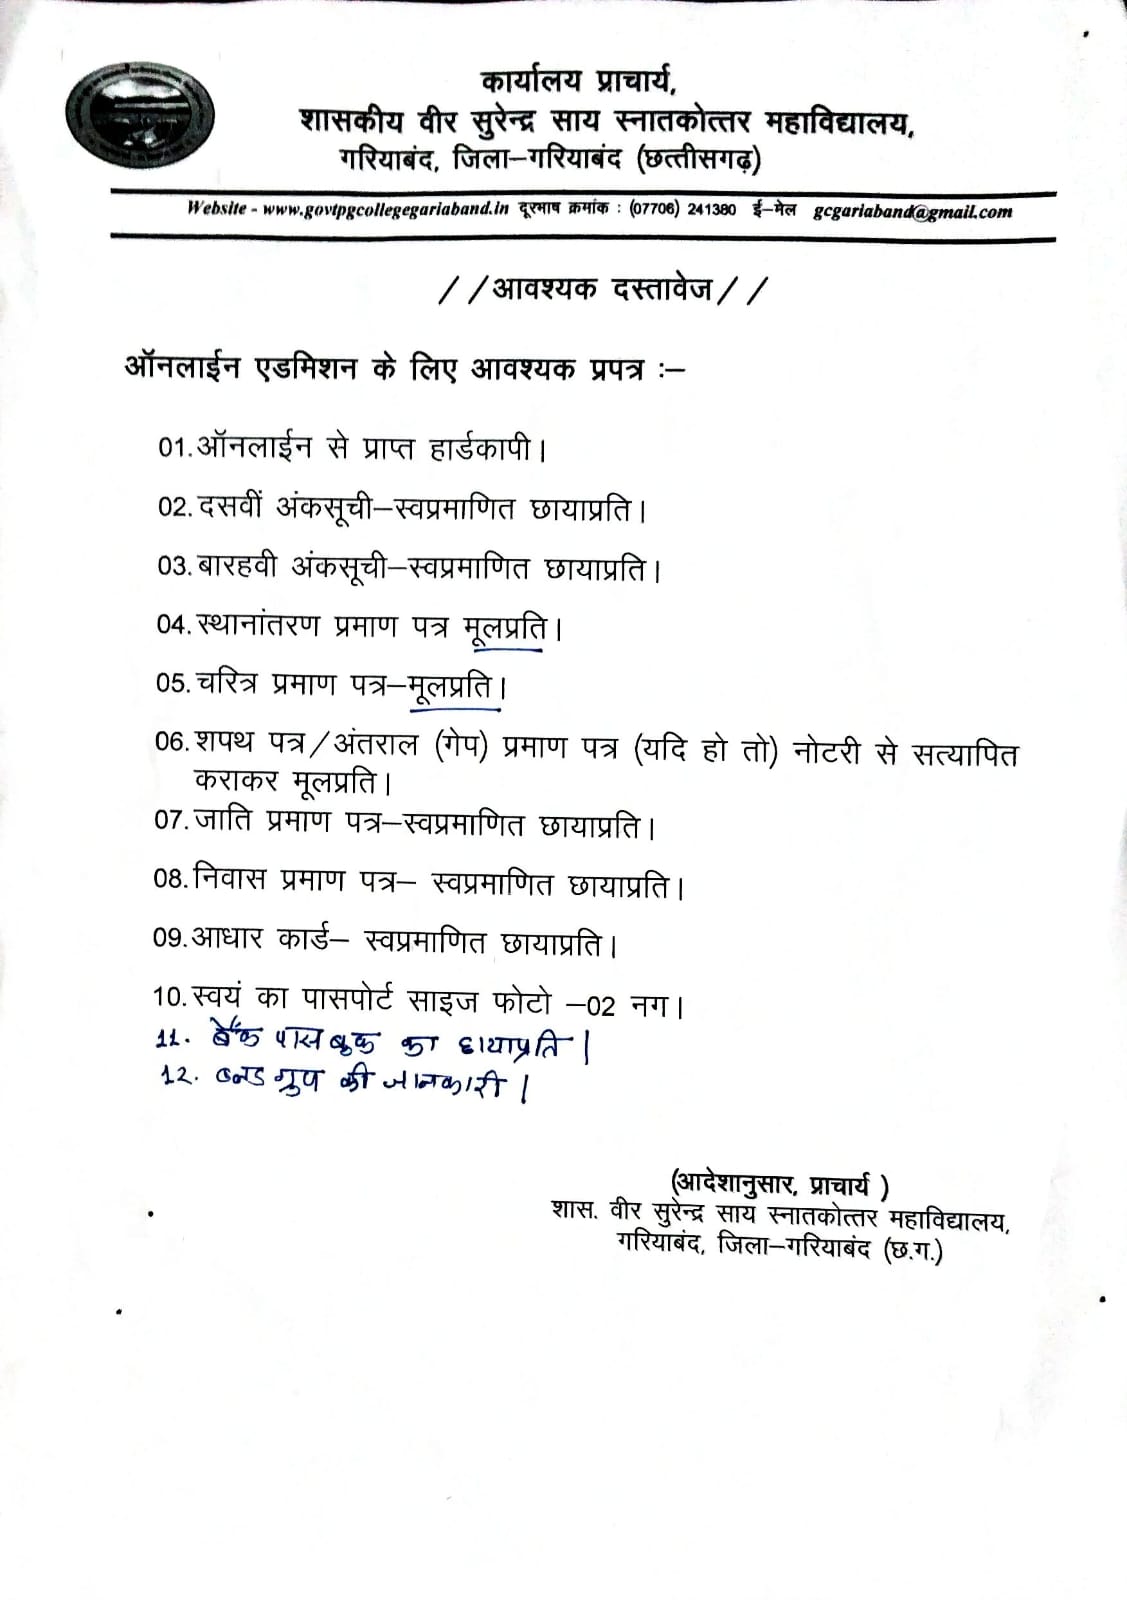 कार्यालय प्राचार्य,
शासकीय वीर सुरेन्द्र साय स्नातकोत्तर महाविद्यालय,
गरियाबंद, जिला–गरियाबंद (छत्तीसगढ़)
Website - www.govtpgcollegegariaband.in दूरभाष क्रमांक : (07706) 241380 ई–मेल gcgariaband@gmail.com
//आवश्यक दस्तावेज//
ऑनलाईन एडमिशन के लिए आवश्यक प्रपत्र :–
01. ऑनलाईन से प्राप्त हार्डकापी।
02. दसवीं अंकसूची–स्वप्रमाणित छायाप्रति।
03. बारहवी अंकसूची–स्वप्रमाणित छायाप्रति।
04. स्थानांतरण प्रमाण पत्र मूलप्रति।
05. चरित्र प्रमाण पत्र–मूलप्रति।
06. शपथ पत्र/अंतराल (गेप) प्रमाण पत्र (यदि हो तो) नोटरी से सत्यापित
कराकर मूलप्रति।
07. जाति प्रमाण पत्र–स्वप्रमाणित छायाप्रति।
08. निवास प्रमाण पत्र– स्वप्रमाणित छायाप्रति।
09. आधार कार्ड– स्वप्रमाणित छायाप्रति।
10. स्वयं का पासपोर्ट साइज फोटो –02 नग।
11. बैंक पास बुक का छायाप्रति।
12. ब्लड ग्रुप की जानकारी।
(आदेशानुसार, प्राचार्य )
शास. वीर सुरेन्द्र साय स्नातकोत्तर महाविद्यालय,
गरियाबंद, जिला–गरियाबंद (छ.ग.)